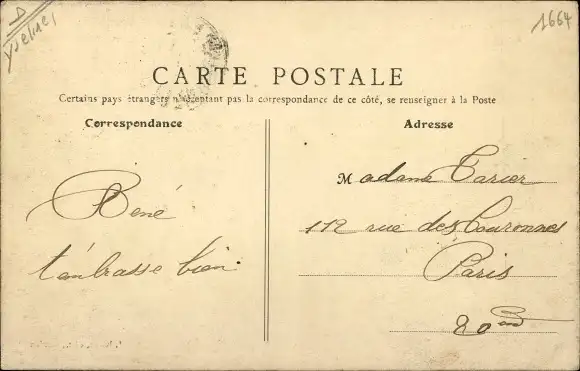 1664
CARTE POSTALE
Certains pays étrangers n'acceptant pas la correspondance de ce côté, se renseigner à la Poste
Correspondance
René
t'embrasse bien.
Adresse
Madame Tarier
112 rue des Couronnes
Paris
20